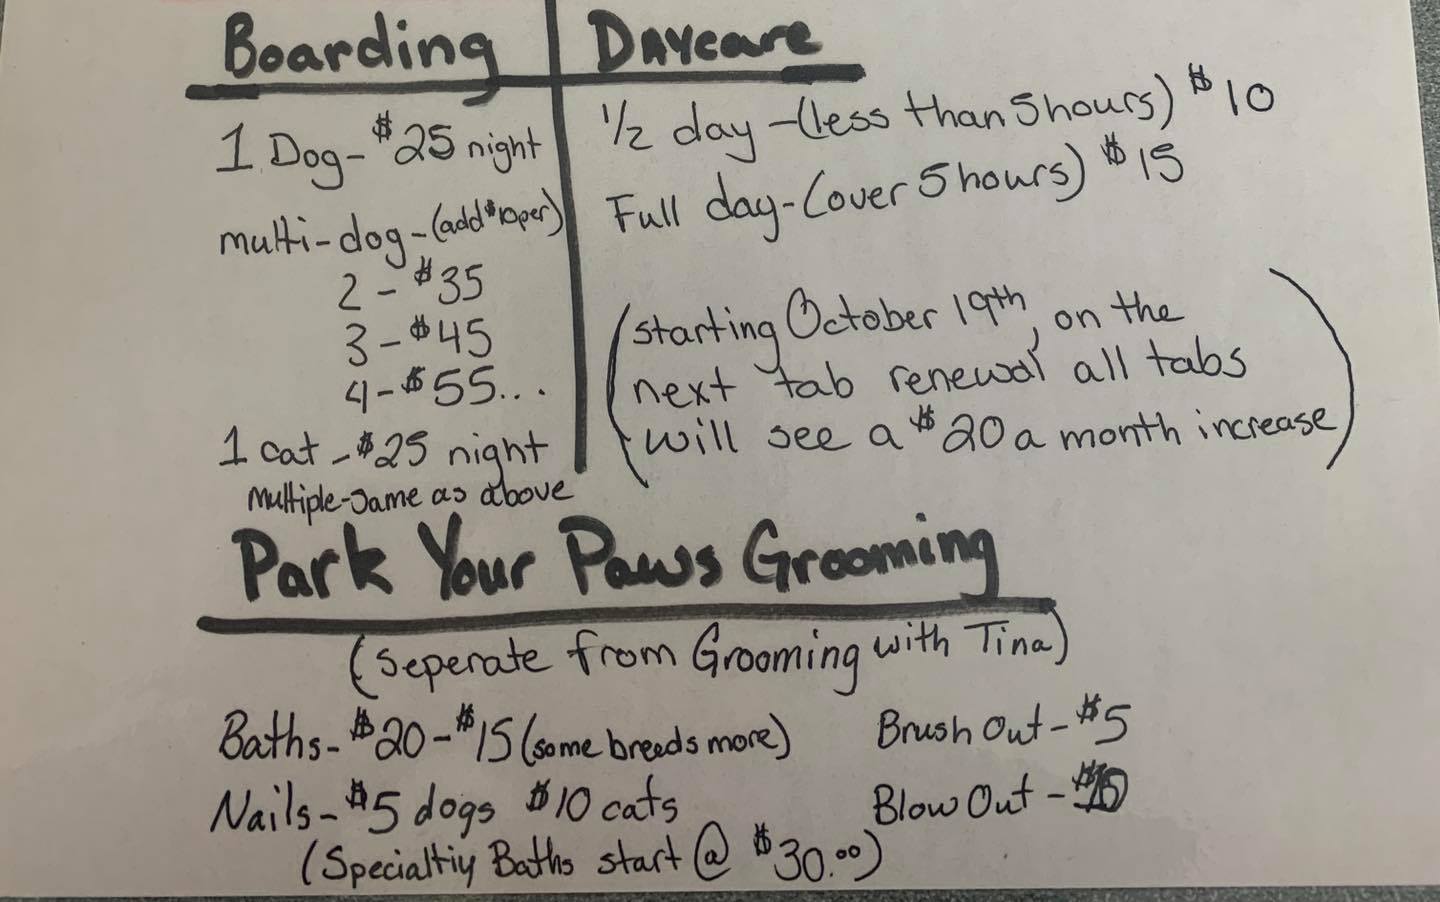 Boarding
1 Dog - $25 night
multi-dog - (add $10 per)
2 - $35
3 - $45
4 - $55...
1 cat - $25 night
multiple - same as above
Daycare
1/2 day - (less than 5 hours) $10
Full day - (over 5 hours) $15
(starting October 19th, on the
next tab renewal all tabs
will see a $20 a month increase)
Park Your Paws Grooming
(seperate from Grooming with Tina)
Baths - $20 - $15 (some breeds more)
Brush Out - $5
Nails - $5 dogs $10 cats
Blow Out -
(Specialtiy Baths start @ $30.00)